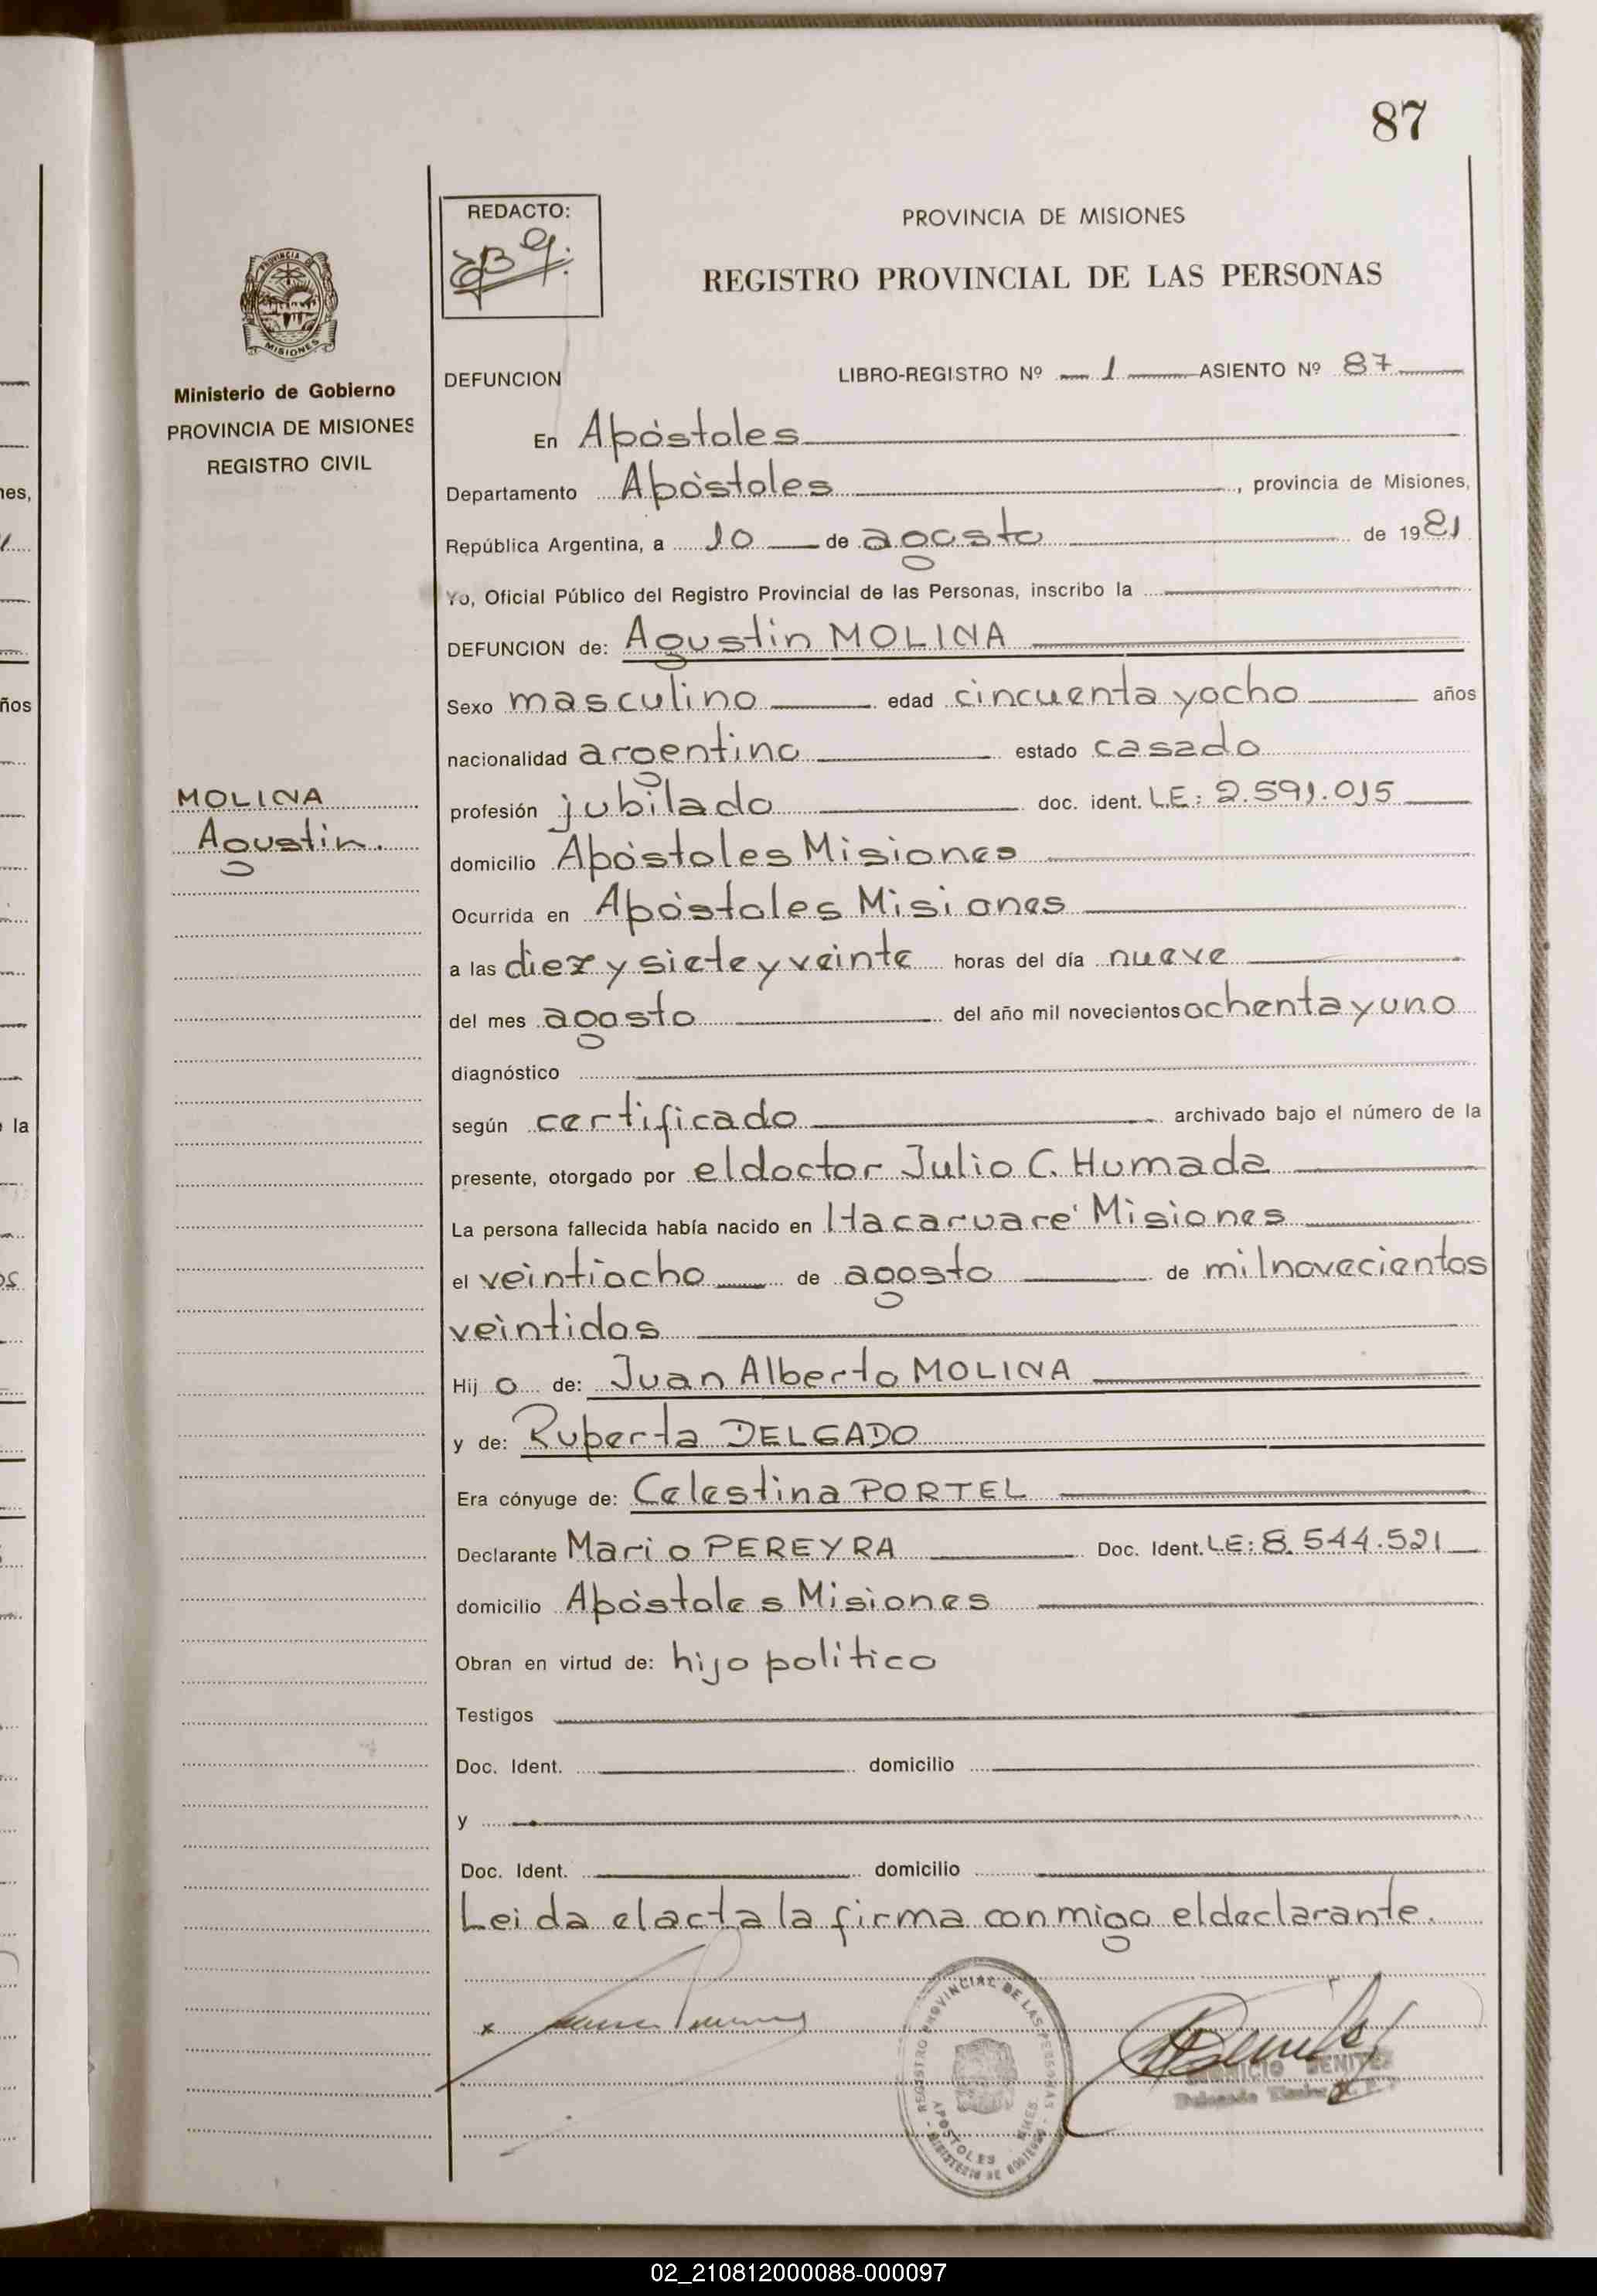 87
REDACTO:
PROVINCIA DE MISIONES
REGISTRO PROVINCIAL DE LAS PERSONAS
PROVINCIA DE
MISIONES
Ministerio de Gobierno
PROVINCIA DE MISIONES
REGISTRO CIVIL
DEFUNCION LIBRO-REGISTRO Nº 1 ASIENTO Nº 87
En Apóstoles
Departamento Apóstoles, provincia de Misiones,
República Argentina, a 10 de agosto de 1981
Yo, Oficial Público del Registro Provincial de las Personas, inscribo la
DEFUNCION de: Agustin MOLINA
Sexo masculino edad cincuenta y ocho años
nacionalidad argentino estado casado
MOLINA
Agustin.
profesión jubilado doc. ident. L.E: 2.591.015
domicilio Apóstoles Misiones
Ocurrida en Apóstoles Misiones
a las diez y siete y veinte horas del día nueve
del mes agosto del año mil novecientos ochenta y uno
diagnóstico
según certificado archivado bajo el número de la
presente, otorgado por el doctor Julio C. Humada
La persona fallecida había nacido en Itacaruaré Misiones
el veintiocho de agosto de mil novecientos
veintidos
Hijo de: Juan Alberto MOLINA
y de: Ruperta DELGADO
Era cónyuge de: Celestina PORTEL
Declarante Mario PEREYRA Doc. Ident. L.E: 8.544.521
domicilio Apóstoles Misiones
Obran en virtud de: hijo politico
Testigos
Doc. Ident. domicilio
y
Doc. Ident. domicilio
Leida el acta la firma conmigo el declarante.
x
REGISTRO PROVINCIAL DE LAS PERSONAS
APOSTOLES MNES.
MINISTERIO DE GOBIERNO
BENITEZ
02_210812000088-000097